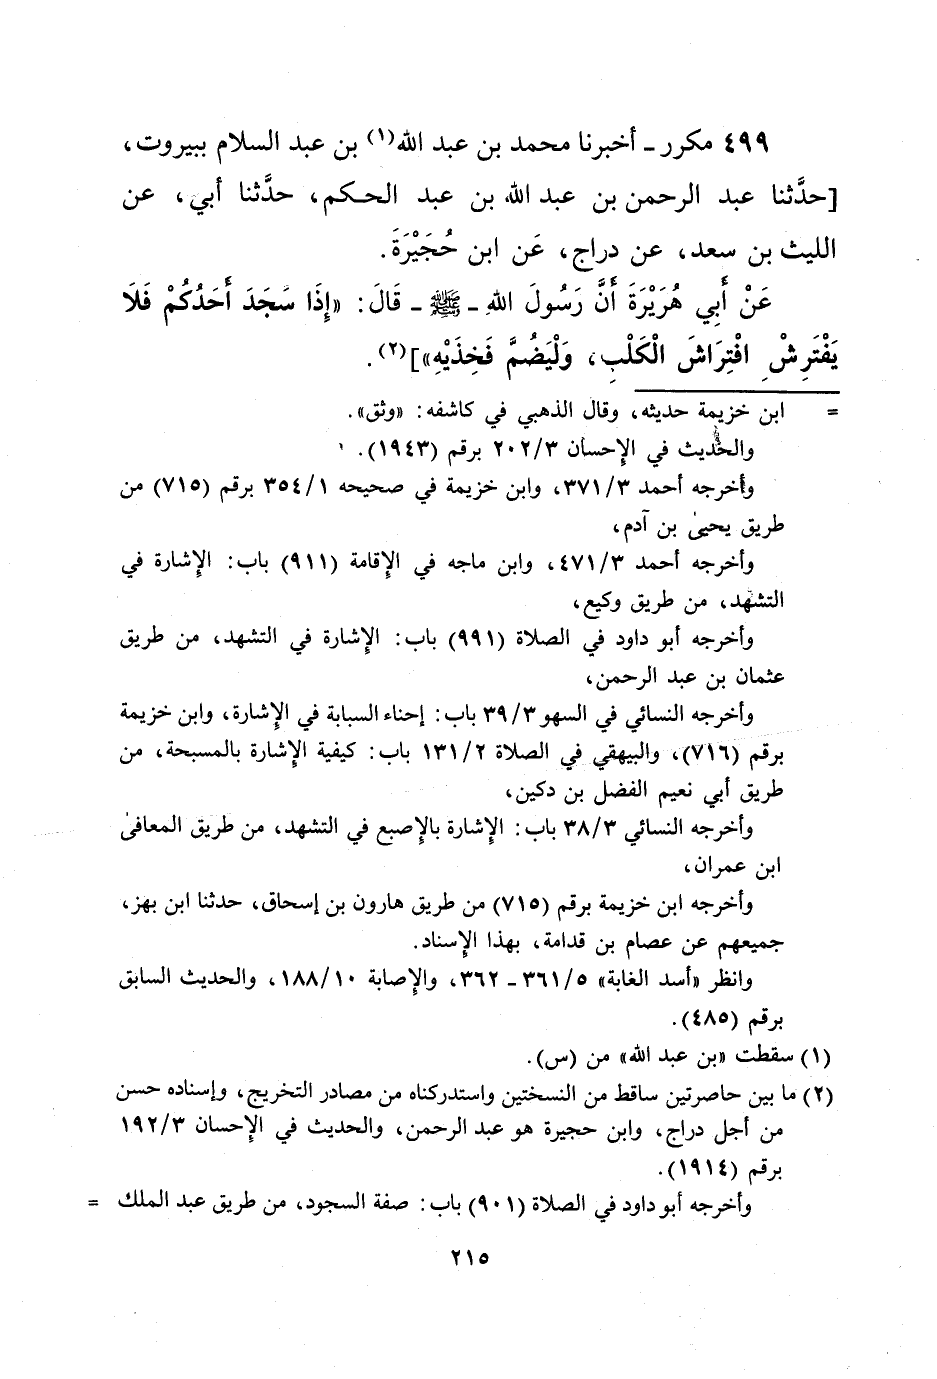 ٤٩٩ مكرر ـ أخبرنا محمد بن عبد الله(١) بن عبد السلام ببيروت،
[حدَّثنا عبد الرحمن بن عبد الله بن عبد الحكم، حدَّثنا أبي، عن
الليث بن سعد، عن دراج، عَن ابن حُجَيْرَةَ.
عَنْ أَبي هُرَيْرَةَ أَنَّ رَسُولَ اللهِ ـ ﷺ ـ قَالَ: «إِذَا سَجَدَ أَحَدُكُمْ فَلَا
يَفْتَرِشْ افْتِرَاشَ الْكَلْبِ، وَلْيَضُمَّ فَخِذَيْهِ»](٢).
= ابن خزيمة حديثه، وقال الذهبي في كاشفه: «وثق».
والحديث في الإحسان ٢٠٢/٣ برقم (١٩٤٣).
وأخرجه أحمد ٣٧١/٣، وابن خزيمة في صحيحه ٣٥٤/١ برقم (٧١٥) من
طريق يحيىٰ بن آدم،
وأخرجه أحمد ٤٧١/٣، وابن ماجه في الإقامة (٩١١) باب: الإشارة في
التشهد، من طريق وكيع،
وأخرجه أبو داود في الصلاة (٩٩١) باب: الإشارة في التشهد، من طريق
عثمان بن عبد الرحمن،
وأخرجه النسائي في السهو ٣٩/٣ باب: إحناء السبابة في الإشارة، وابن خزيمة
برقم (٧١٦)، والبيهقي في الصلاة ١٣١/٢ باب: كيفية الإشارة بالمسبحة، من
طريق أبي نعيم الفضل بن دكين،
وأخرجه النسائي ٣٨/٣ باب: الإشارة بالإصبع في التشهد، من طريق المعافىٰ
ابن عمران،
وأخرجه ابن خزيمة برقم (٧١٥) من طريق هارون بن إسحاق، حدثنا ابن بهز،
جميعهم عن عصام بن قدامة، بهذا الإسناد.
وانظر «أسد الغابة» ٣٦١/٥ ـ ٣٦٢، والإصابة ١٨٨/١٠، والحديث السابق
برقم (٤٨٥).
(١) سقطت «بن عبد الله» من (س).
(٢) ما بين حاصرتين ساقط من النسختين واستدركناه من مصادر التخريج، وإسناده حسن
من أجل دراج، وابن حجيرة هو عبد الرحمن، والحديث في الإحسان ١٩٢/٣
برقم (١٩١٤).
وأخرجه أبو داود في الصلاة (٩٠١) باب: صفة السجود، من طريق عبد الملك =
٢١٥